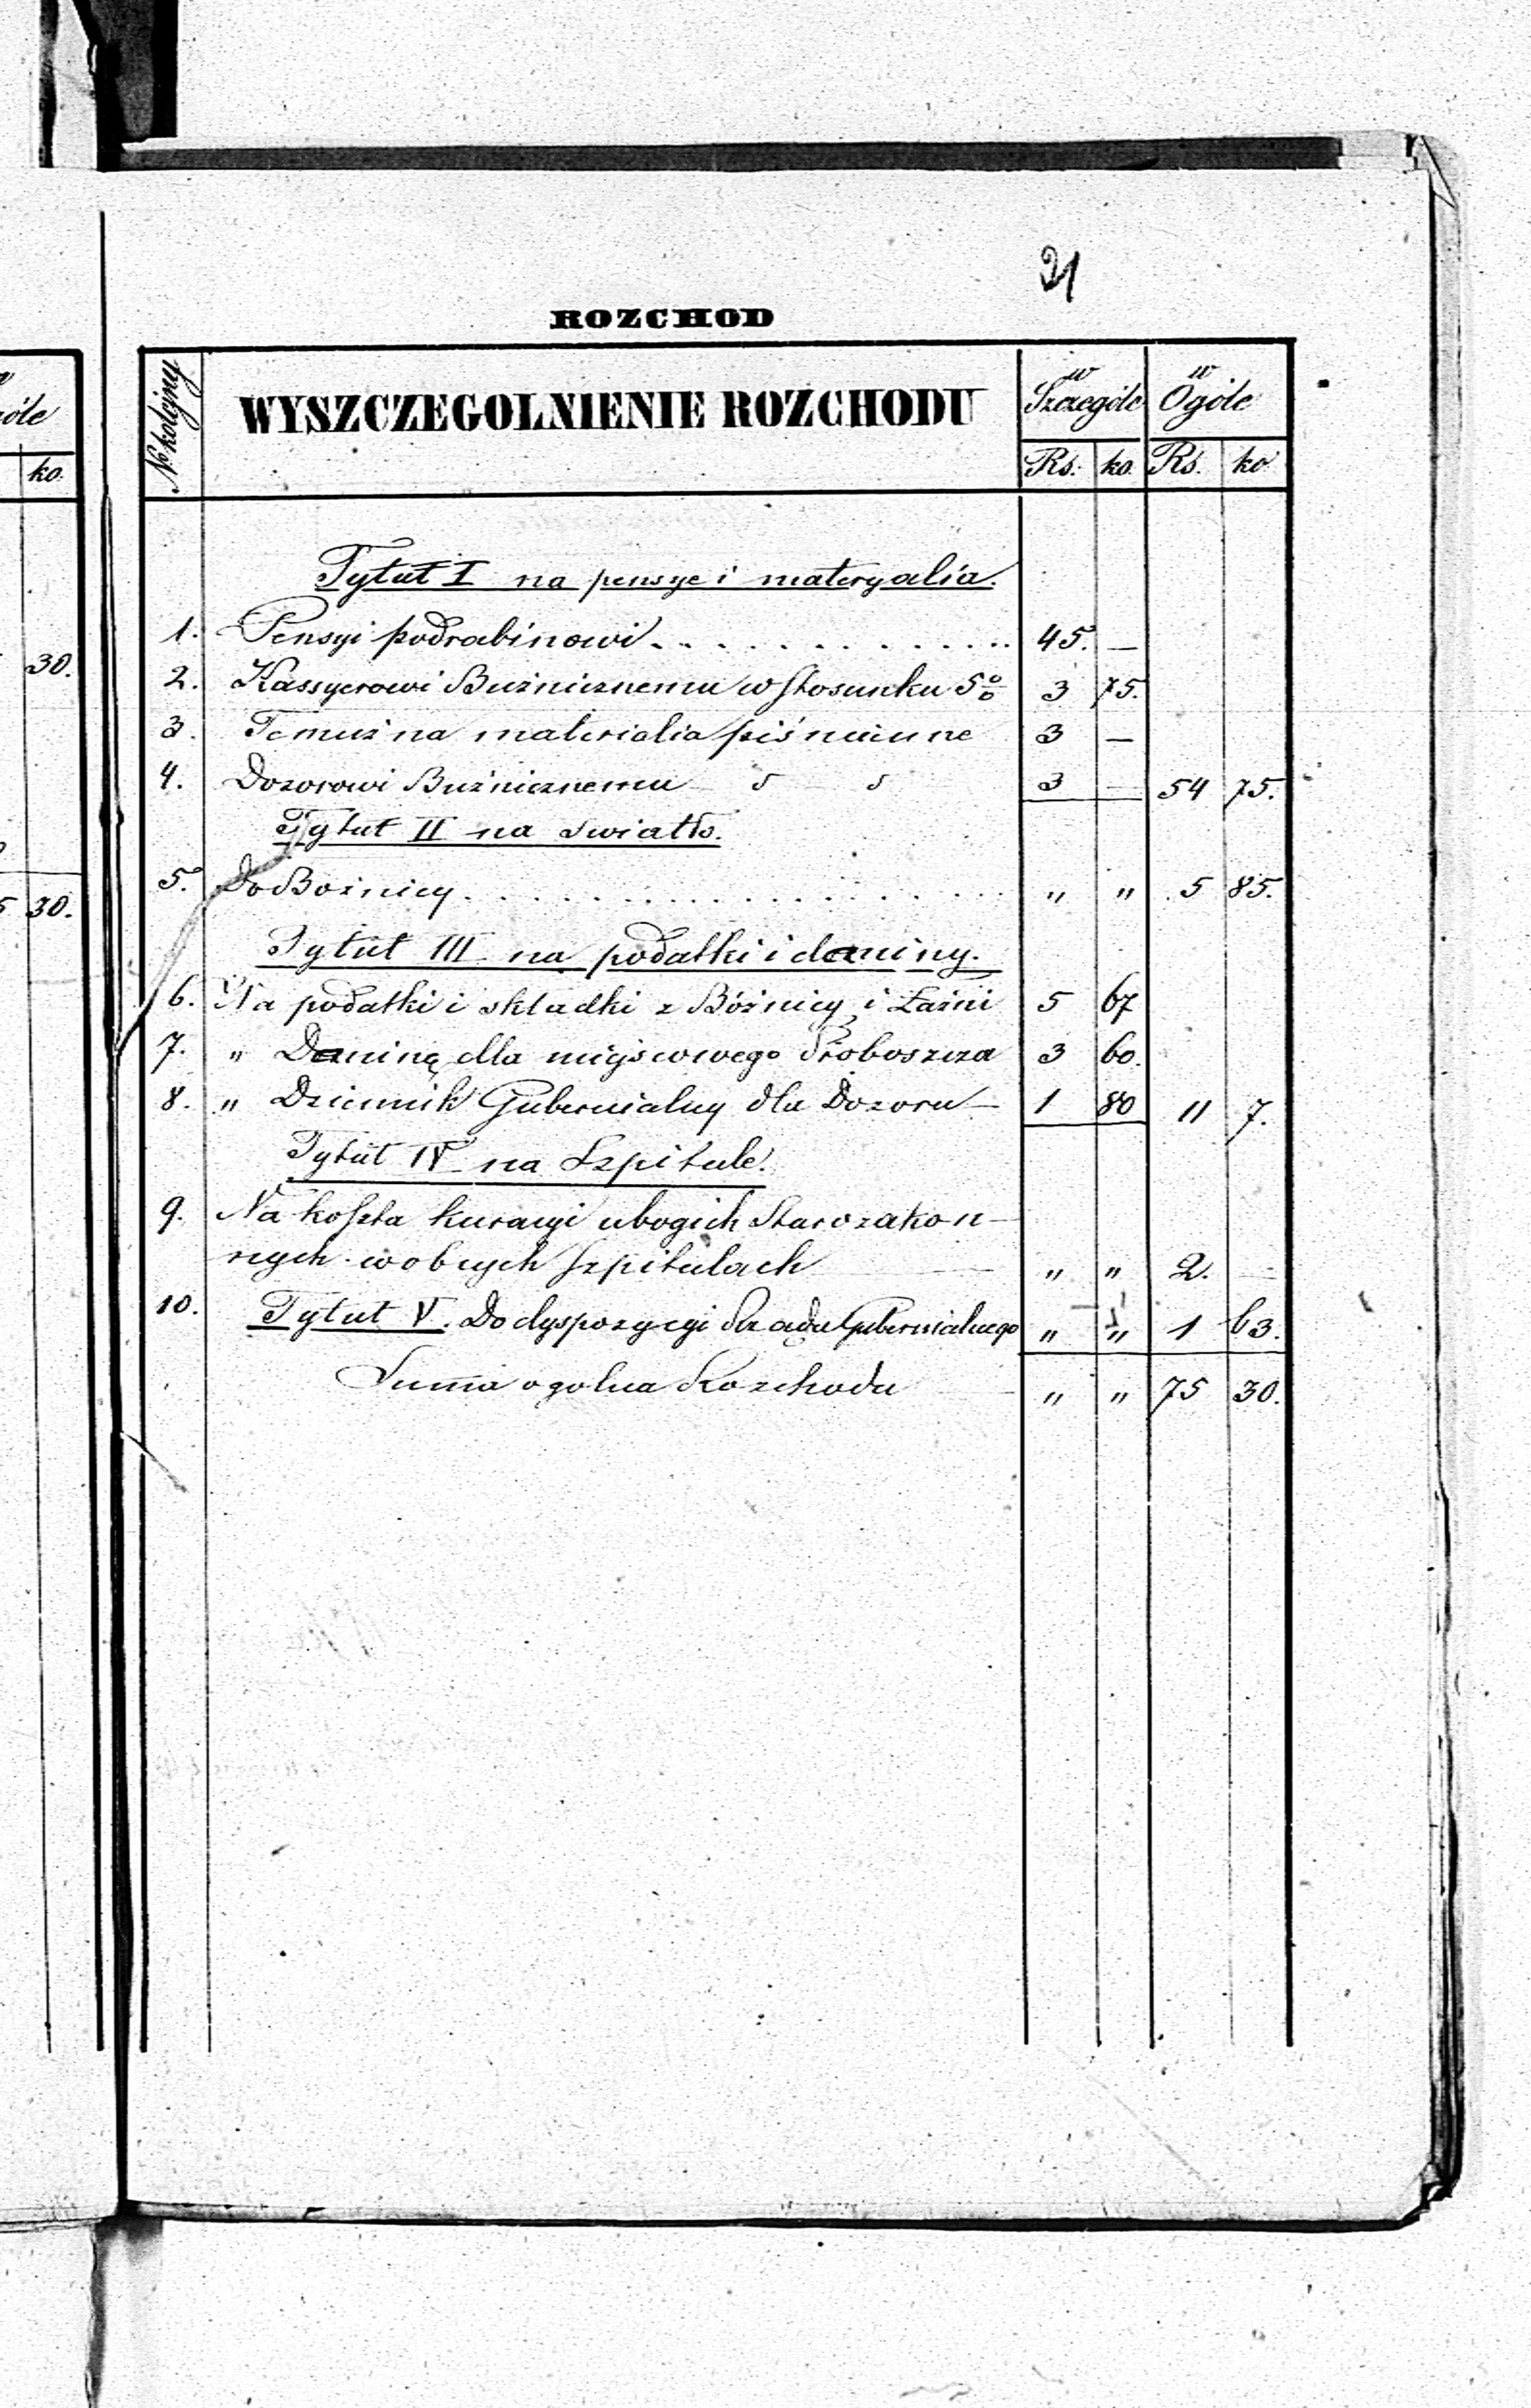 21
ROZCHOD
№ kolejny WYSZCZEGOLNIENIE ROZCHODU w Szczególe w Ogóle
óle
ko.
Rs. ko. Rs. ko
Tytuł I na pensye i materyalia.
1. Pensyi podrabinowi . . . . . . . . . . . . 45. —
30.
2. Kassyerowi Bużnicznemu w stosunku 5% 3 75.
3. Temuż na materialia piśmienne 3 —
4. Dozorowi Bużnicznemu 3 — 54 75.
Tytuł II na swiatło.
5. Do Bożnicy . . . . . . . . . . . . . . . . . „ „ 5 85.
5 30.
Tytuł III na podatki i daniny.
6. Na podatki i składki z Bóżnicy i Łaźni 5 67
7. „ Daninę dla miejscowego Proboszcza 3 60.
8. „ Dziennik Gubernialny dla Dozoru — 1 80 11 7.
Tytuł IV na Szpitale.
9. Na koszta kuracyi ubogich Starozakon-
nych w obcych szpitalach „ „ 2. —
10. Tytuł V. Do dyspozycyi Rządu Gubernialnego „ „ 1 63.
Suma ogolna Rozchodu „ „ 75 30.